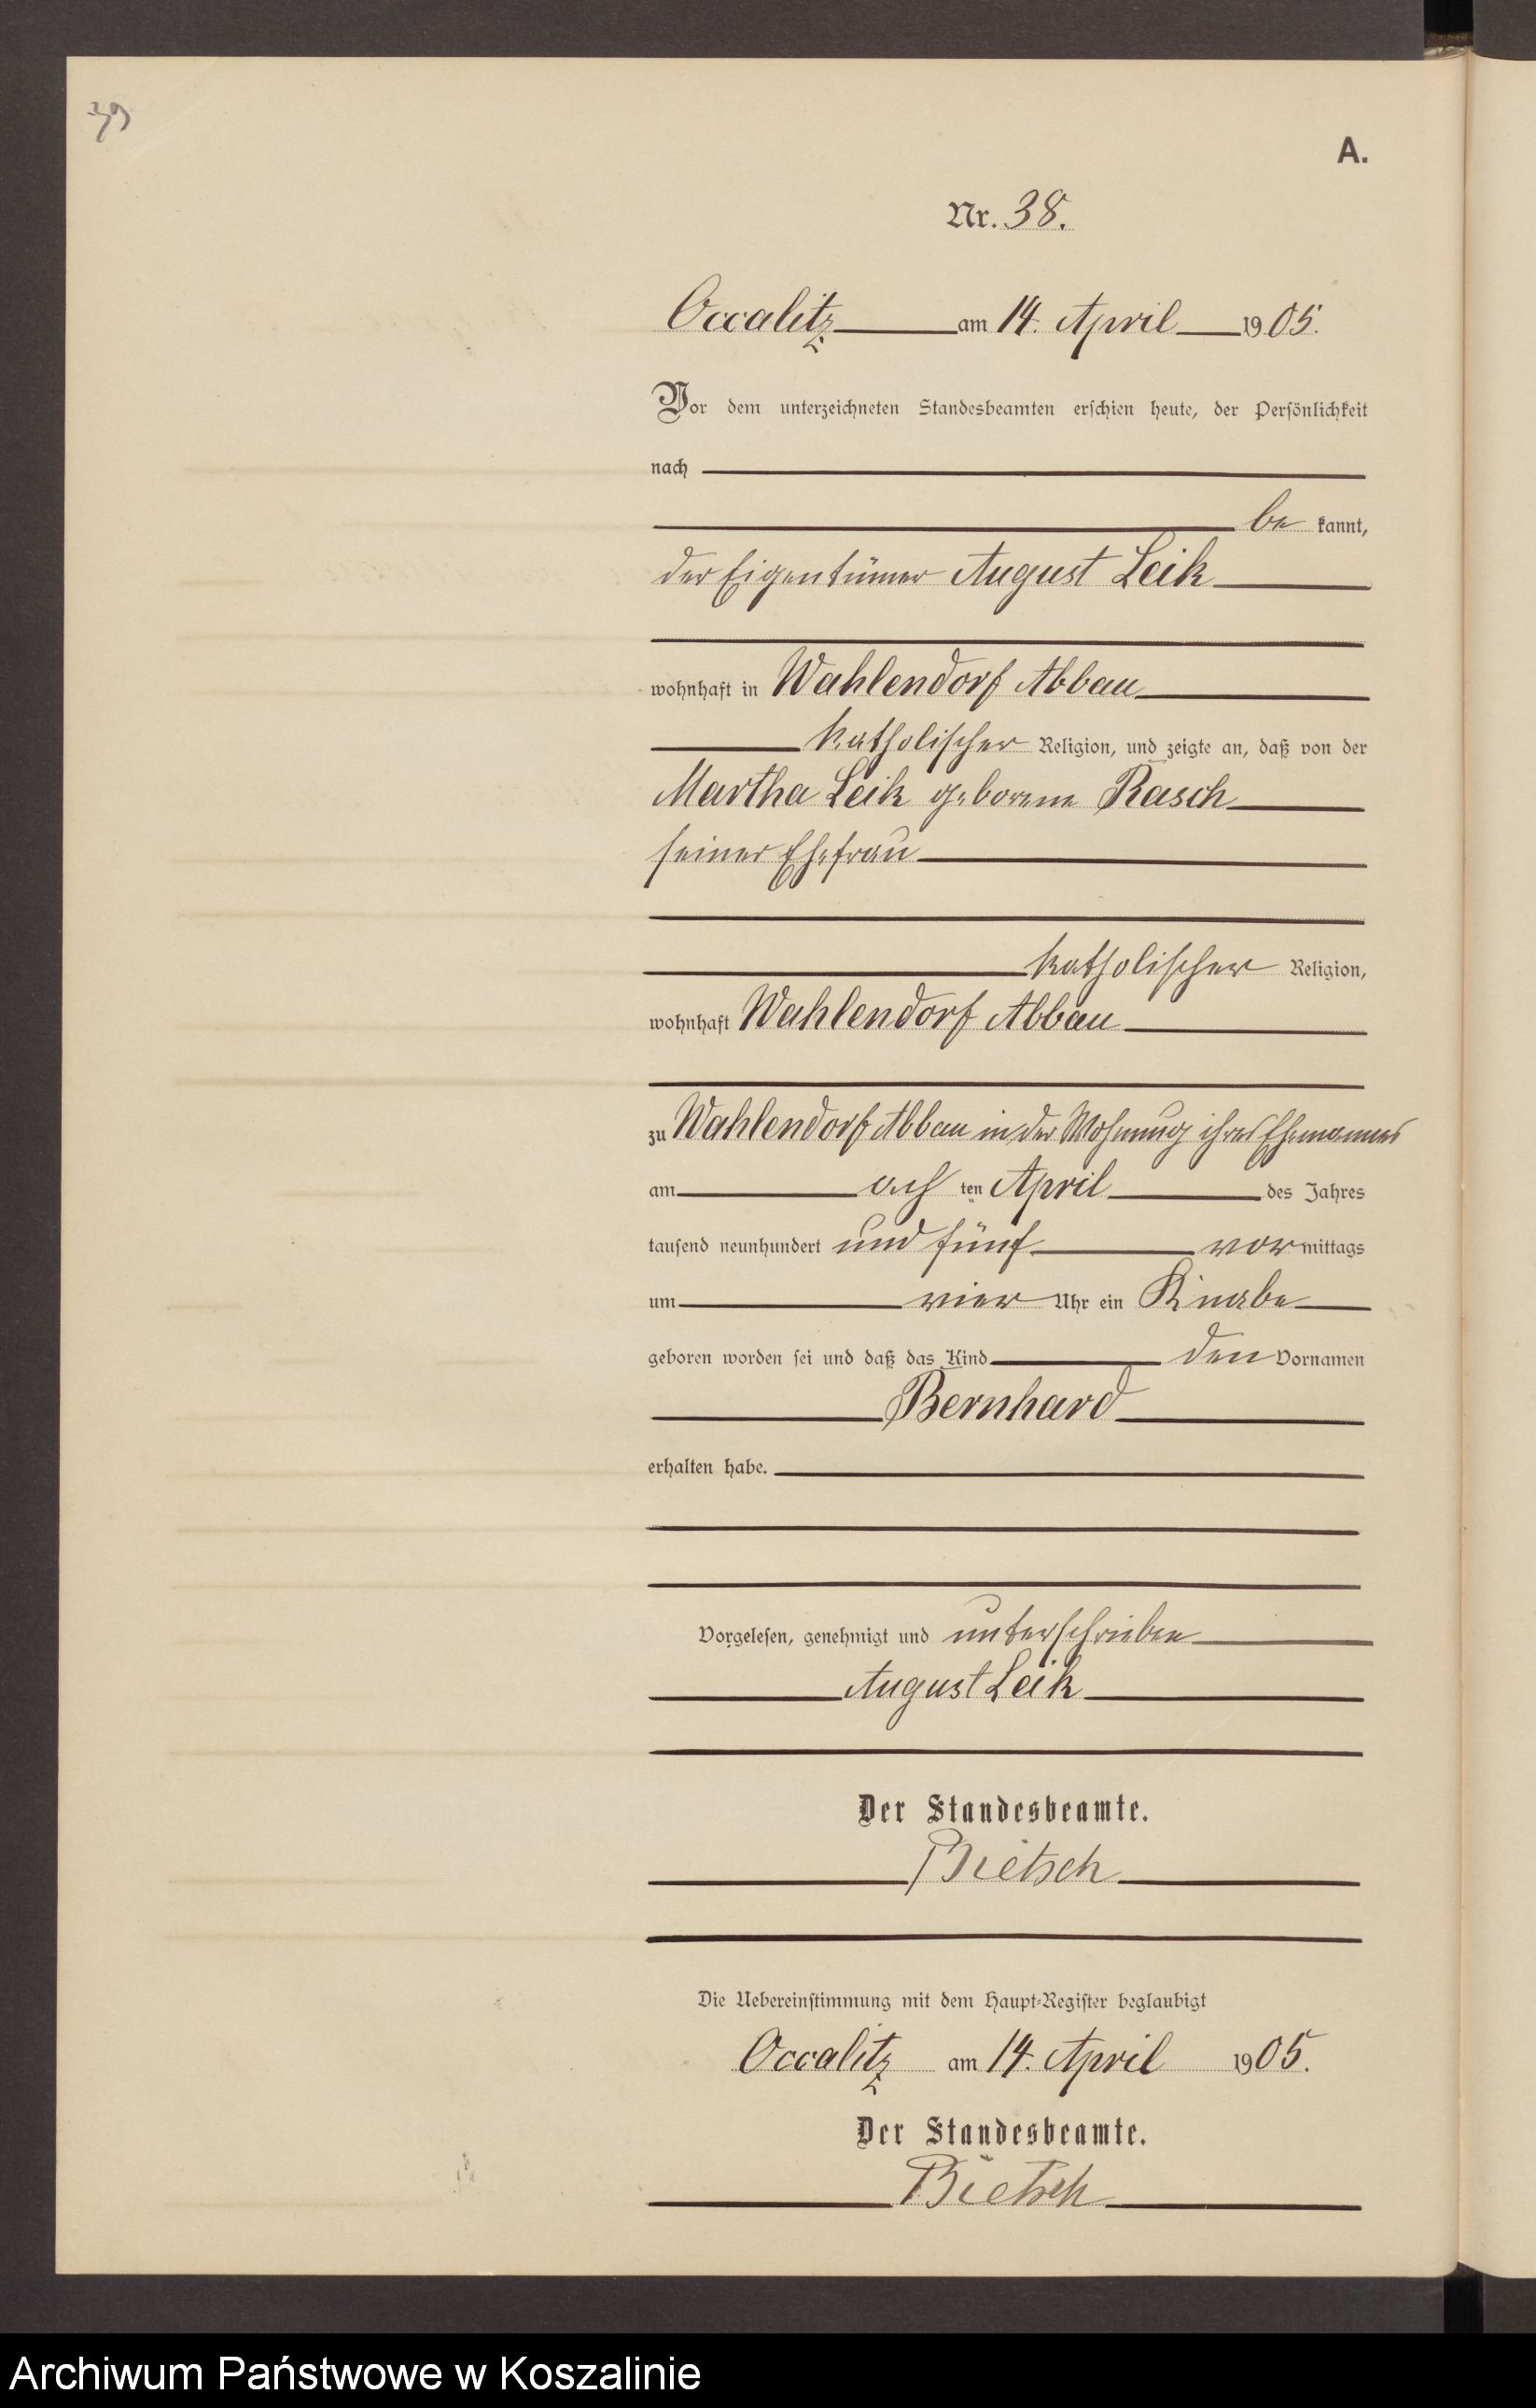 39
A.
Nr. 38.
Occalitz am 14. April 1905.
Vor dem unterzeichneten Standesbeamten erschien heute, der Persönlichkeit
nach
be kannt,
der Eigentümer August Leik
wohnhaft in Wahlendorf Abbau
katholischer Religion, und zeigte an, daß von der
Martha Leik geborene Rasch
seiner Ehefrau
katholischer Religion,
wohnhaft Wahlendorf Abbau
zu Wahlendorf Abbau in der Wohnung ihres Ehemannes
am ach ten April des Jahres
tausend neunhundert und fünf vor mittags
um vier Uhr ein Knabe
geboren worden sei und daß das Kind den Vornamen
Bernhard
erhalten habe.
Vorgelesen, genehmigt und unterschrieben
August Leik
Der Standesbeamte.
Bietsch
Die Uebereinstimmung mit dem Haupt-Register beglaubigt
Occalitz am 14. April 1905.
Der Standesbeamte.
Bietsch
Archiwum Państwowe w Koszalinie